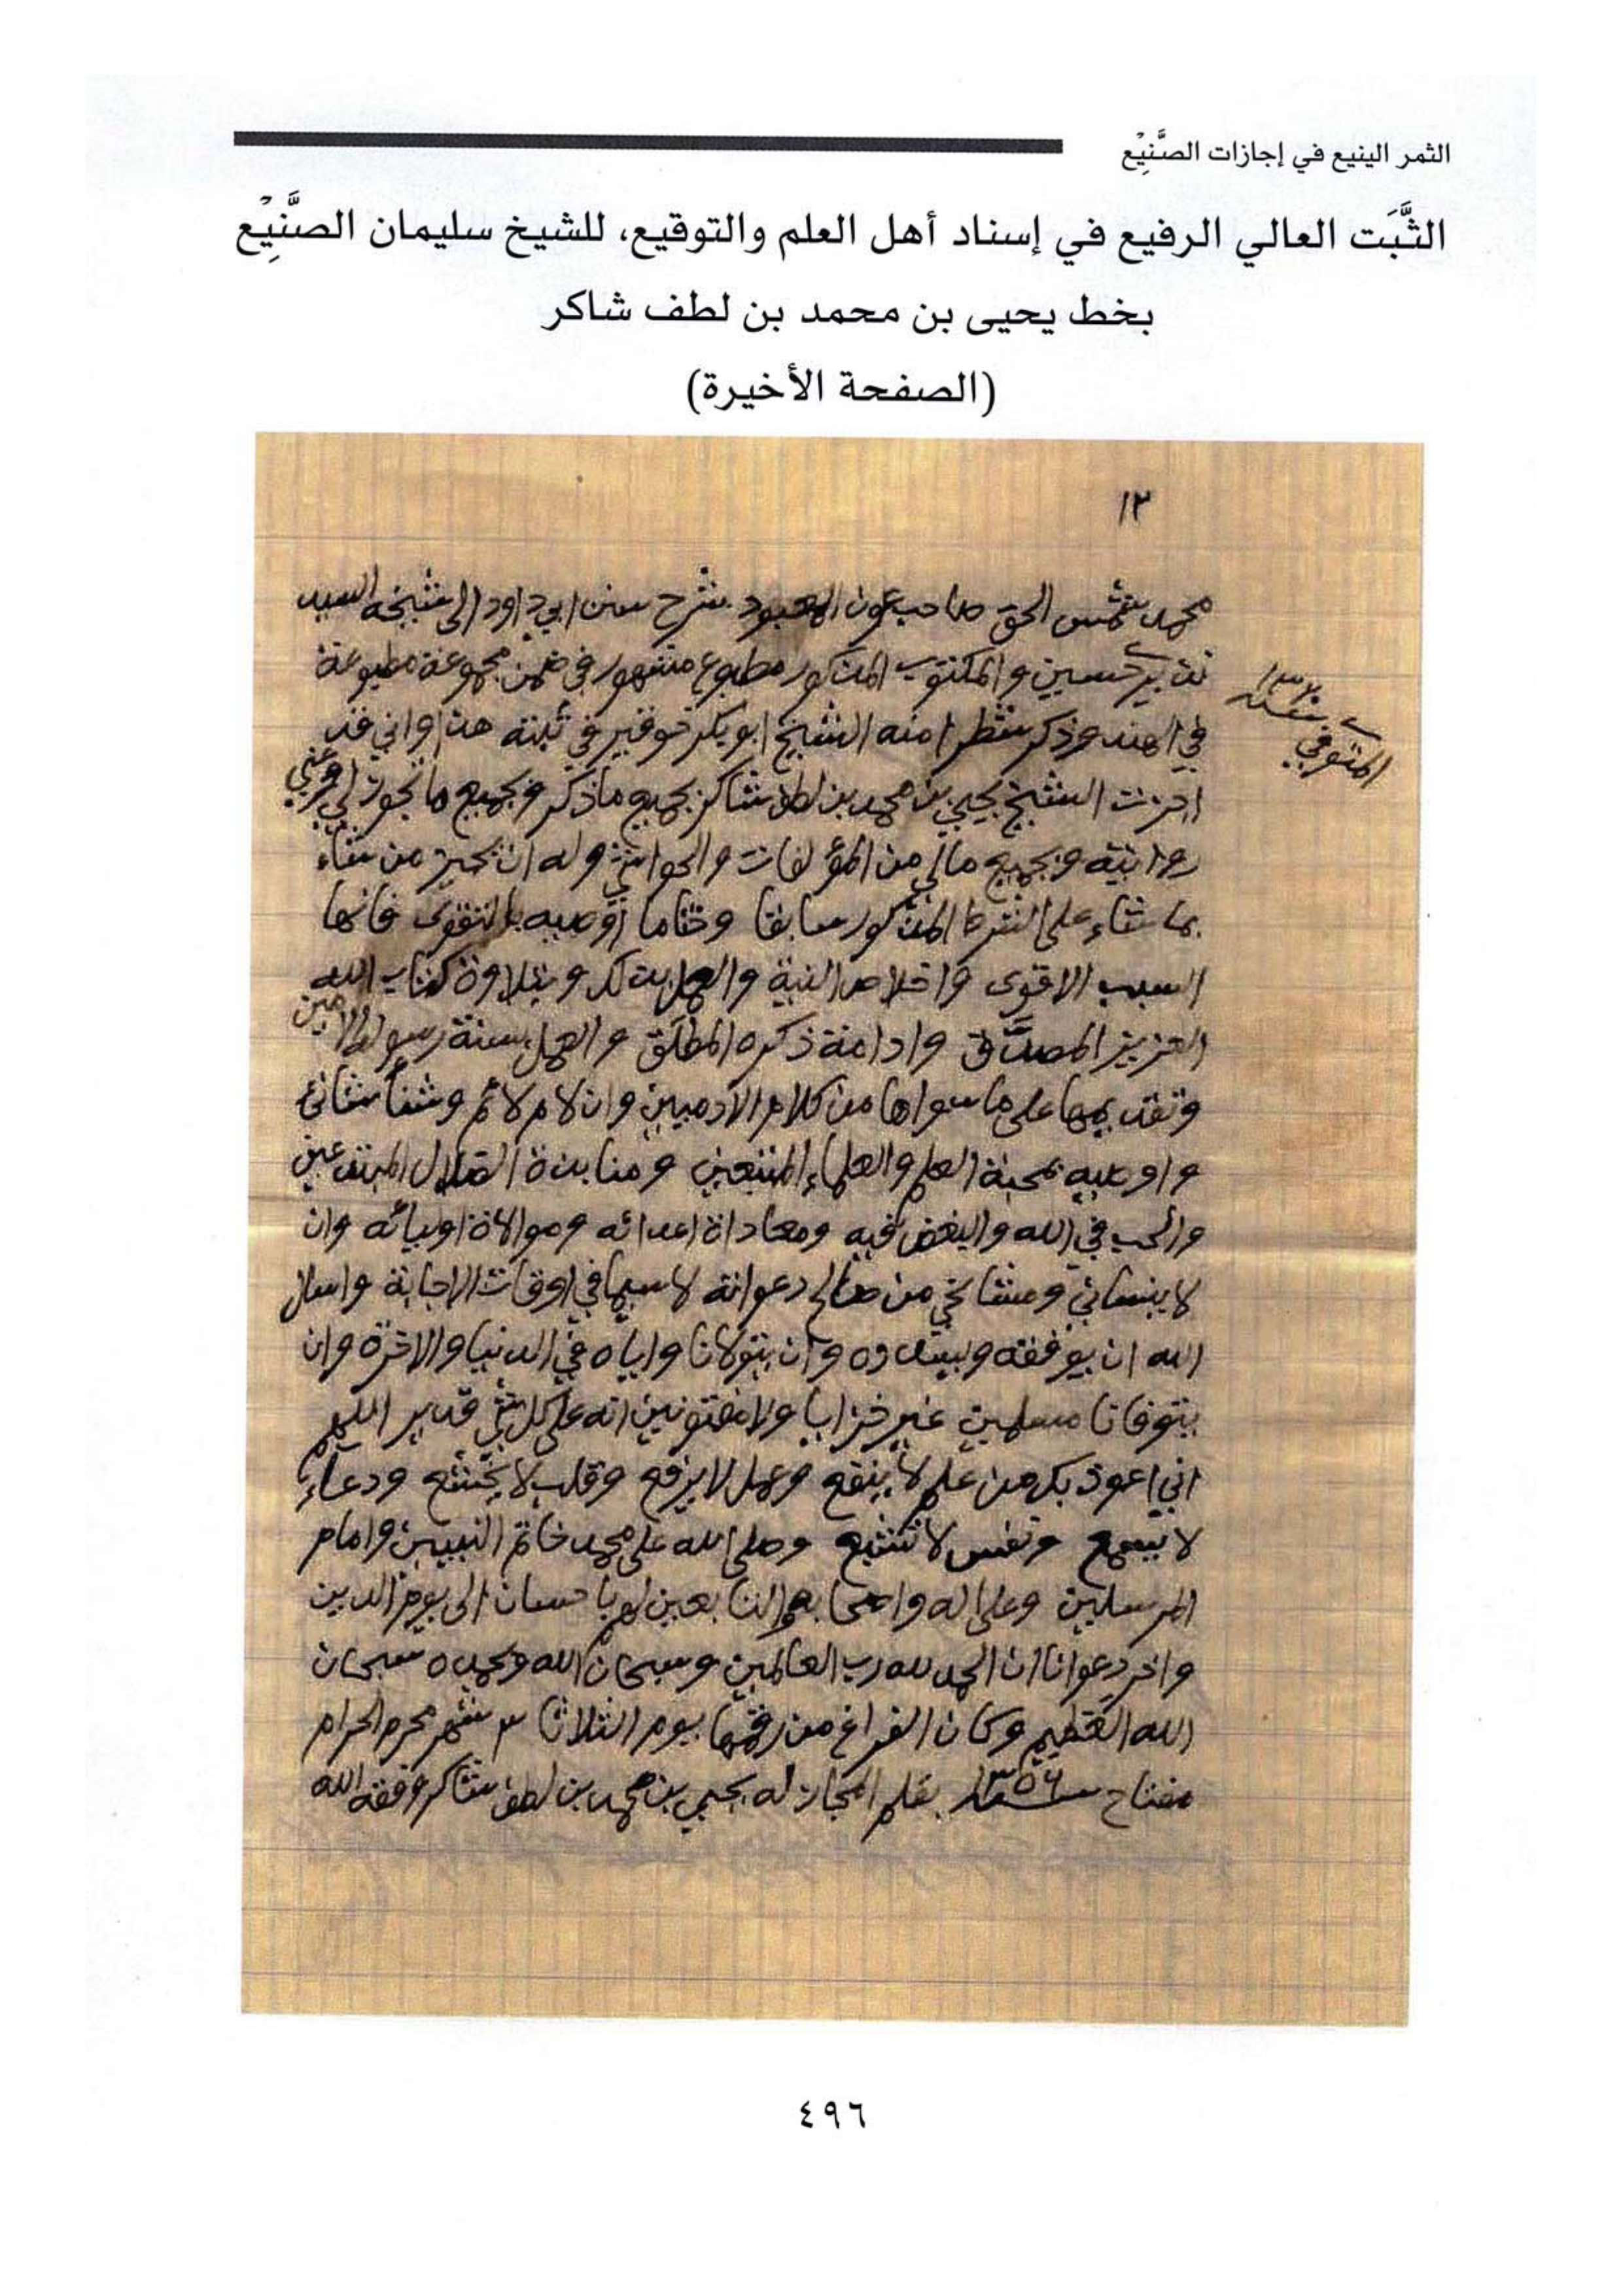 الثمر الينيع في إجازات الصَّنِيْع
الثَّبَت العالي الرفيع في إسناد أهل العلم والتوقيع، للشيخ سليمان الصَّنِيْع
بخط يحيى بن محمد بن لطف شاكر
(الصفحة الأخيرة)
١٢
محمد شمس الحق صاحب عون المعبود شرح سنن ابي داود الى شيخه السيد
نذير حسين والمكتوب المذكور مطبوع مشهور في ضمن مجموعة مطبوعة
المتوفي سنة ١٣٢٠
في الهند وذكر شطرا منه الشيخ ابو بكر خوقير في ثبته هذا واني قد
اجزت الشيخ يحيي بن محمد بن لطف شاكر بجميع ما ذكر وبجميع ما تجوز لي وعني
روايته وبجميع مالي من المؤلفات والحواشي وله ان يجيز من شاء
بما شاء على الشرط المذكور سابقا وختاما اوصيه بالتقوى فانها
السبب الاقوى واخلاص النية والعمل بذلك وبتلاوة كتاب الله
العزيز المصدَّق وادامة ذكره المطلق والعمل بسنة رسوله الامين
وتقديمها على ما سواها من كلام الآدميين وان لام لائم وشنأ شانئ
واوصيه بمحبة العلم والعلماء المتبعين ومنابذة الضلال المبتدعين
والحب في الله والبغض فيه ومعاداة اعدائه وموالاة اوليائه وان
لا ينساني ومشائخي من صالح دعواته لاسيما في اوقات الاجابة واسال
الله ان يوفقه ويسدده وان يتولانا واياه في الدنيا والاخرة وان
يتوفانا مسلمين غير خزايا ولا مفتونين انه على كل شئ قدير اللهم
اني اعوذ بك من علم لا ينفع وعمل لا يرفع وقلب لا يخشع ودعاء
لا يسمع ونفس لا تشبع وصلى الله على محمد خاتم النبيين وامام
المرسلين وعلى اله واصحابه والتابعين لهم باحسان الى يوم الدين
واخر دعوانا ان الحمد لله رب العالمين وسبحان الله وبحمده سبحان
الله العظيم وكان الفراغ من رقمها يوم الثلاثا ٣ شهر محرم الحرام
مفتاح سنة ١٣٥٦ بقلم المجاز له يحيي بن محمد بن لطف شاكر وفقه الله
٤٩٦